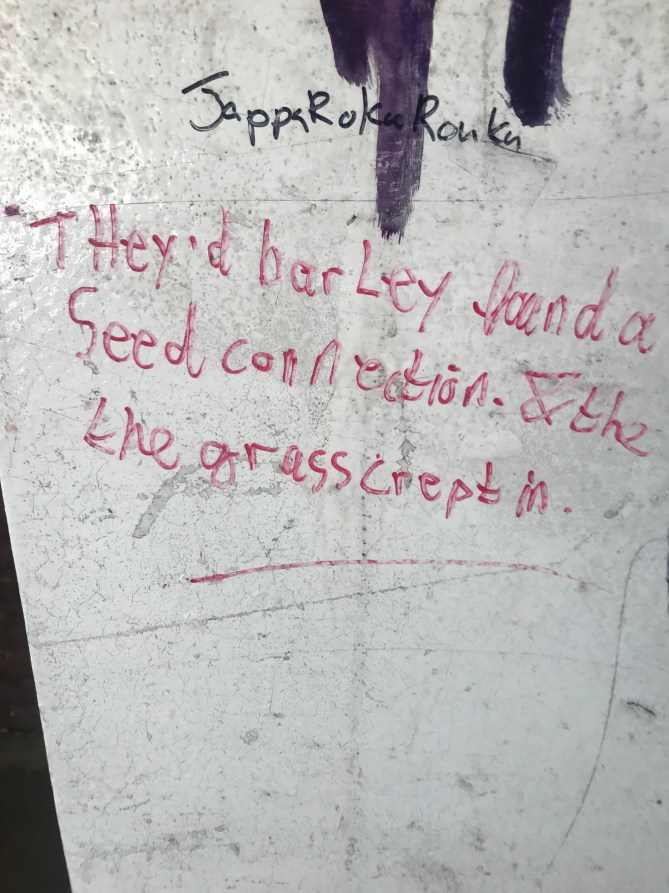 JappaRokaRonka
THey'd barLey found a
Seed connection. & the
the grass crept in.